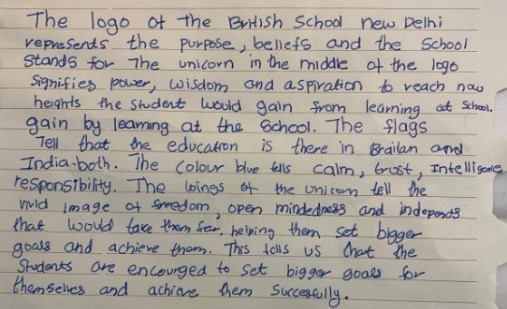 The logo of the British School new Delhi
represents the purpose, beliefs and the School
Stands for The unicorn in the middle of the logo
signifies power, wisdom and aspiration to reach new
heights the student would gain from learning at School.
gain by learning at the School. The flags
Tell that the education is there in Braitan and
India both. The colour blue tells calm, trust, Intelligence
responsibility. The wings of the unicorn tell the
vivid image of freedom, open mindedness and independs
that would take them far, helping them set bigger
goals and achieve them. This tells us that the
Students are encourged to set bigger goals for
themselves and achieve them Succesfully.